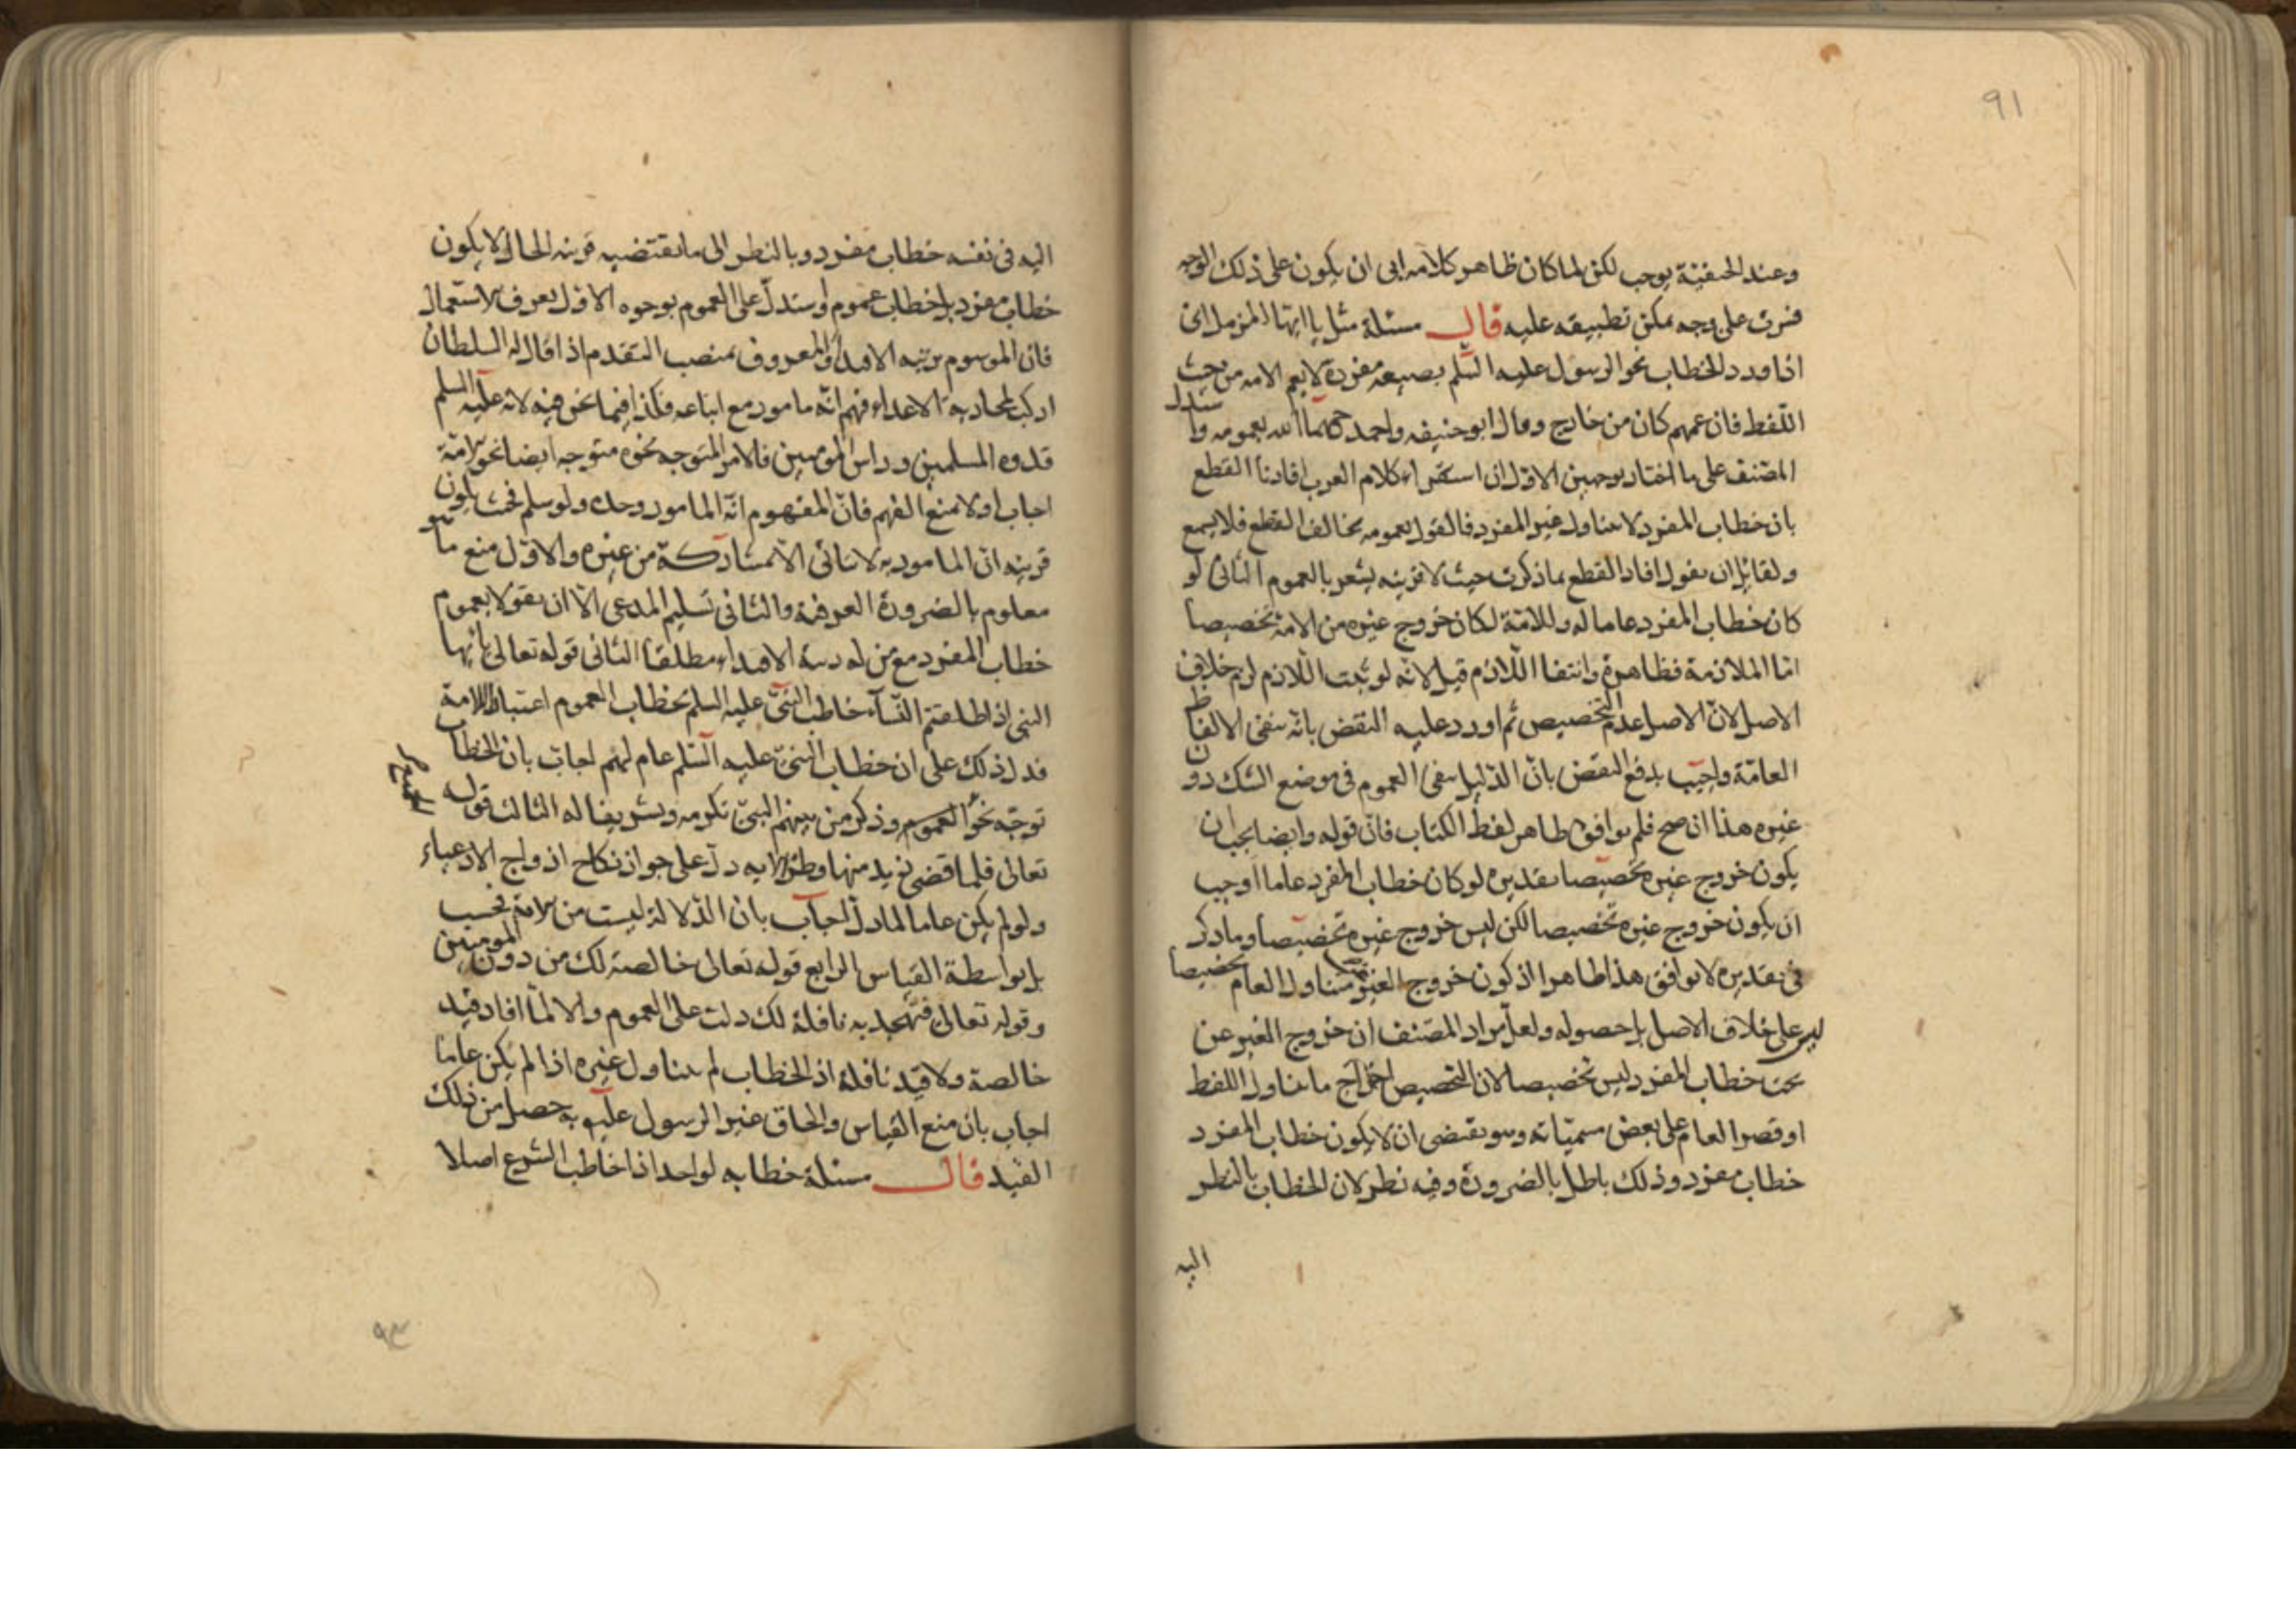 ٩١
وعند الحنفية يوجب لكن لما كان ظاهر كلامه ابى ان يكون على ذلك الوجه
فسرت على وجه يمكن تطبيقه عليه قال مسئلة مثل يا ايها المزمل اى
اذا ورد الخطاب نحو الرسول عليه السلم بصيغه مفردة لا يعم الامه من حيث
اللفظ فان عمهم كان من خارج وقال ابو حنيفه واحمد رحمهما الله بعمومه واستدل
المصنف على ما اختار بوجهين الاول ان استقراء كلام العرب افادنا القطع
بان خطاب المفرد لا يتناول غير المفرد فالقول بعمومه يخالف القطع فلا يسمع
ولقائل ان يقول افاد القطع بما ذكرت حيث لا قرينه يشعر بالعموم الثانى لو
كان خطاب المفرد عاما له وللامة لكان خروج غيره من الامة تخصيصا
اما الملازمة فظاهرة وانتفا اللازم قيل لانه لو ثبت اللازم لزم خلاف
الاصل لان الاصل عدم التخصيص ثم اورد عليه النقض بانه ينفى الالفاظ
العامة واجيب بدفع النقض بان الدليل ينفى العموم فى موضع الشك دون
غيره هذا ان صح فلم يوافق ظاهر لفظ الكتاب فان قوله وايضا يجب ان
يكون خروج غيره تخصيصا تقديره لو كان خطاب المفرد عاما اوجب
ان يكون خروج غيره تخصيصا لكن ليس خروج غيره تخصيصا وما ذكر
فى تقديره لا يوافق هذا ظاهرا اذ كون خروج الغير متناول العام تخصيصا
ليس على خلاف الاصل بل حصوله ولعل مراد المصنف ان خروج الغير عن
تحت خطاب المفرد ليس تخصيصا لان التخصيص اخراج ما تناول اللفظ
او قصر العام على بعض مسمياته وهو يقتضى ان لا يكون خطاب المفرد
خطاب مفرد وذلك باطل بالضرورة وفيه نظر لان الخطاب بالنظر
اليه
اليه فى نفسه خطاب مفرد وبالنظر الى ما تقتضيه قرينه الحال لا يكون
خطاب مفرد بل خطاب عموم واستدل على العموم بوجوه الاول بعرف الاستعمال
فان الموسوم برتبه الاقتداء والمعروف بمنصب التقدم اذا قال له السلطان
اركب لمحاربة الاعداء فهم انه مامور مع اتباعه فكذا فيما نحن فيه لانه عليه السلم
قدوه المسلمين وراس المومنين فالامر المتوجه نحوه متوجه ايضا نحو الامة
اجاب اولا بمنع الفهم فان المفهوم انه المامور وحده ولو سلم فحيث يكون
قرينه ان المامور به لا يتاتى الا بمشاركة من غيره والاول منع ما هو
معلوم بالضرورة العرفية والثانى تسليم المدعى الا ان يقولا بعموم
خطاب المفرد مع من له رتبة الاقتداء مطلقا الثانى قوله تعالى يا ايها
النبى اذا طلقتم النساء خاطب النبى عليه السلم بخطاب العموم اعتبارا للامة
فدل ذلك على ان خطاب النبى عليه السلم عام لهم اجاب بان الخطاب
توجه نحو العموم وذكر من بينهم النبى تكرمه وتشريفا له الثالث قوله
تعالى فلما قضى زيد منها وطرا الايه دل على جواز نكاح ازواج الادعياء
ولو لم يكن عاما لما دل اجاب بان الدلالة ليست من الامة فحسب
بل بواسطة القياس الرابع قوله تعالى خالصة لك من دون المومنين
وقوله تعالى فتهجد به نافلة لك دلت على العموم والا لما افاد قيد
خالصة ولا قيد نافلة اذ الخطاب لم يتناول غيره اذا لم يكن عاما
اجاب بان منع القياس والحاق غير الرسول عليه به حصل من ذلك
القيد قال مسئلة خطابه لواحد اذا خاطب الشرع اصلا